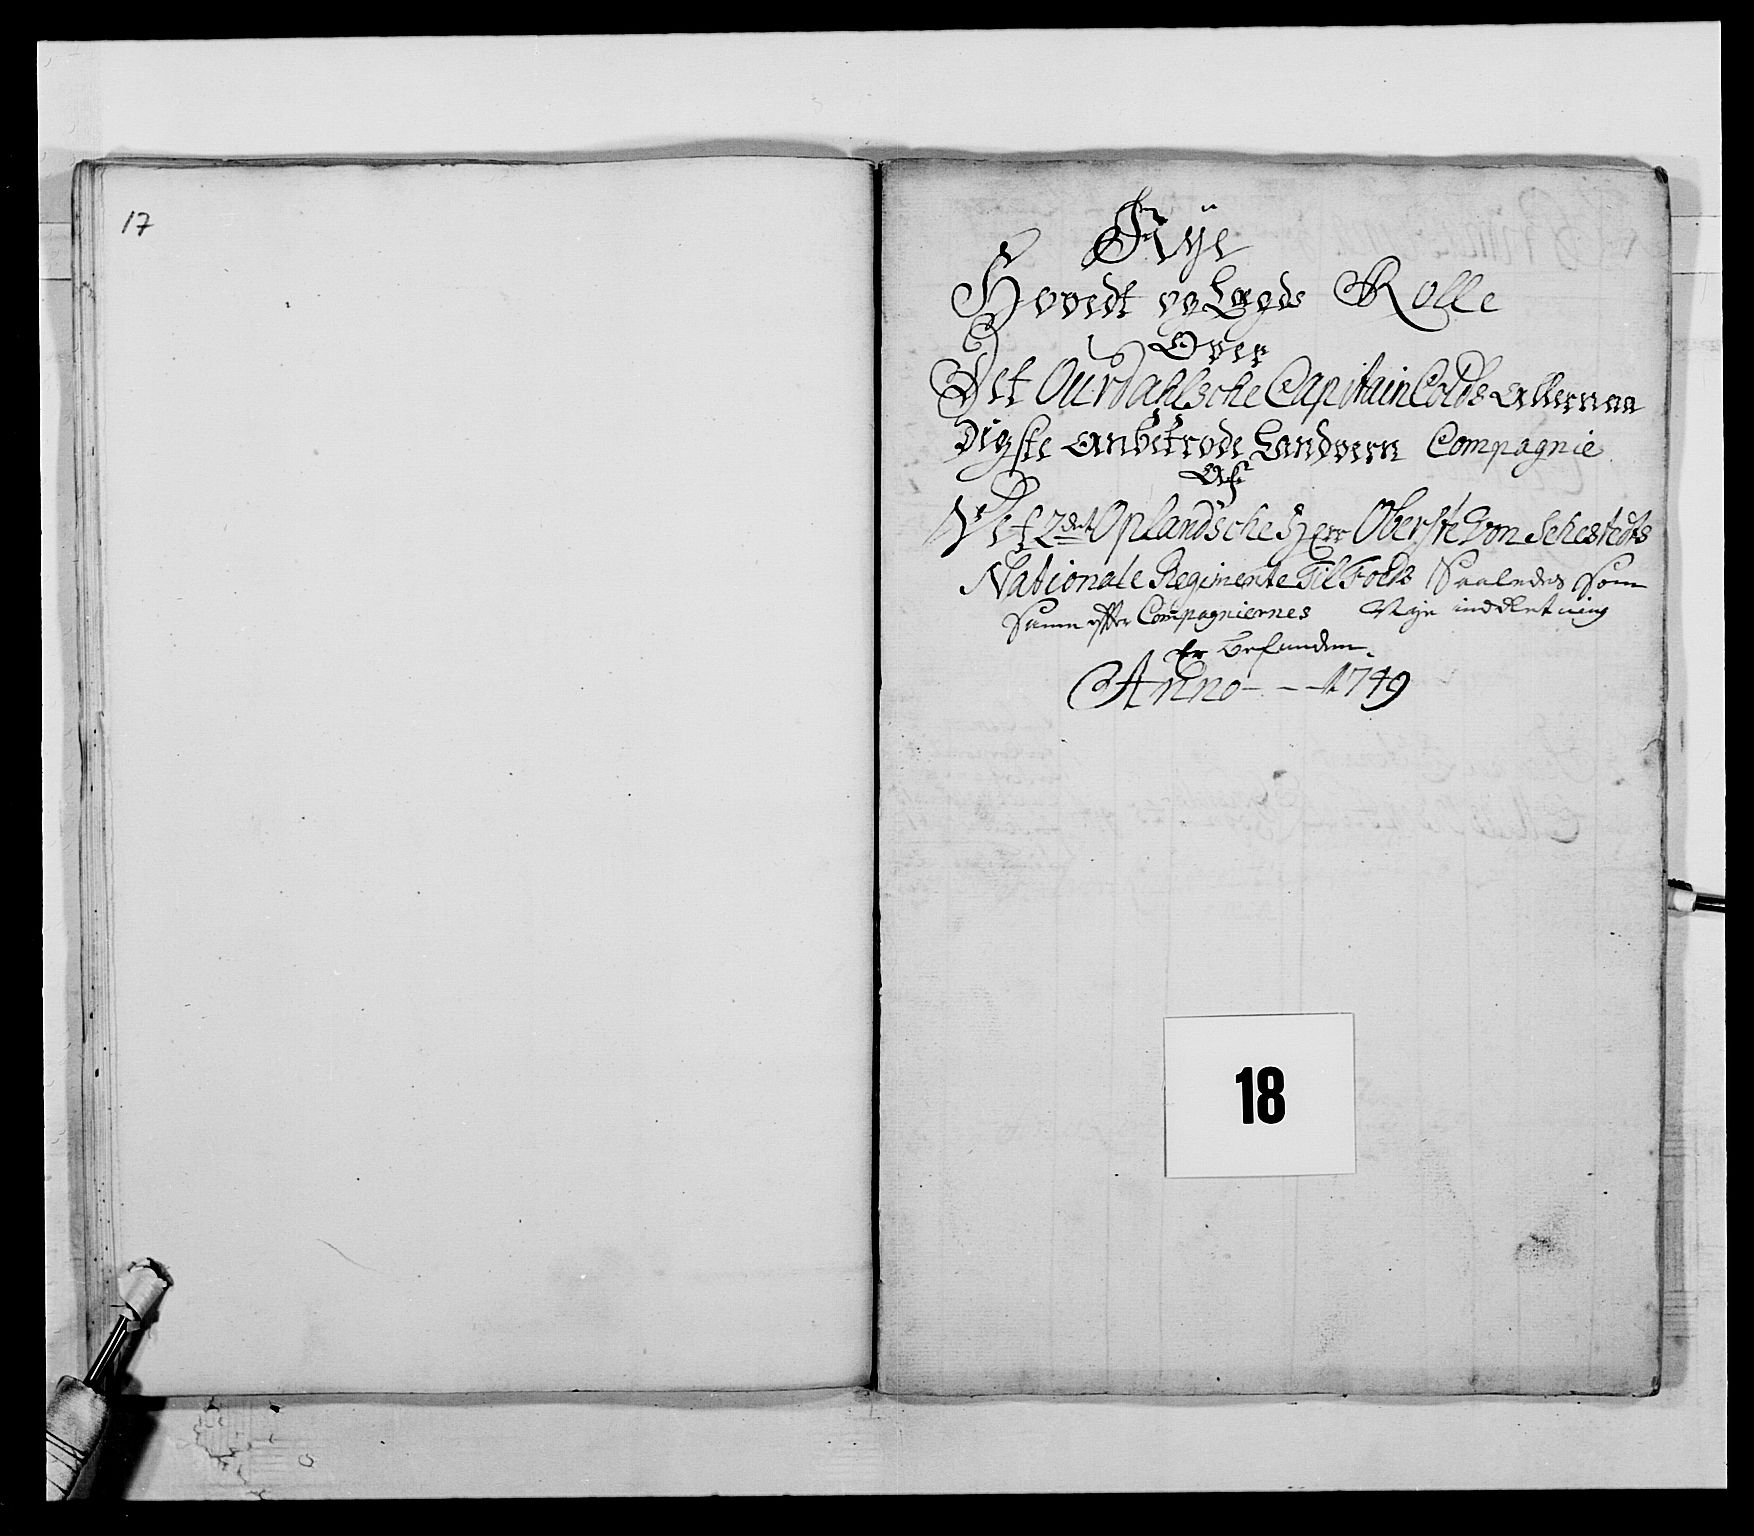 17
Nÿe
Hovedt og Lægds Rolle
Over
Det Ourdahlsche Capitain Colds Allernaa
digste Anbetrode Landvern Compagnie
Af
Det 2det Oplandsche Herr Oberste Von Sehestedts
Nationale Regimente Til Fods Saaledes som
Samme effter Compagniernes Nye inddeelning
Er befunden.
Anno - - - 1749
18